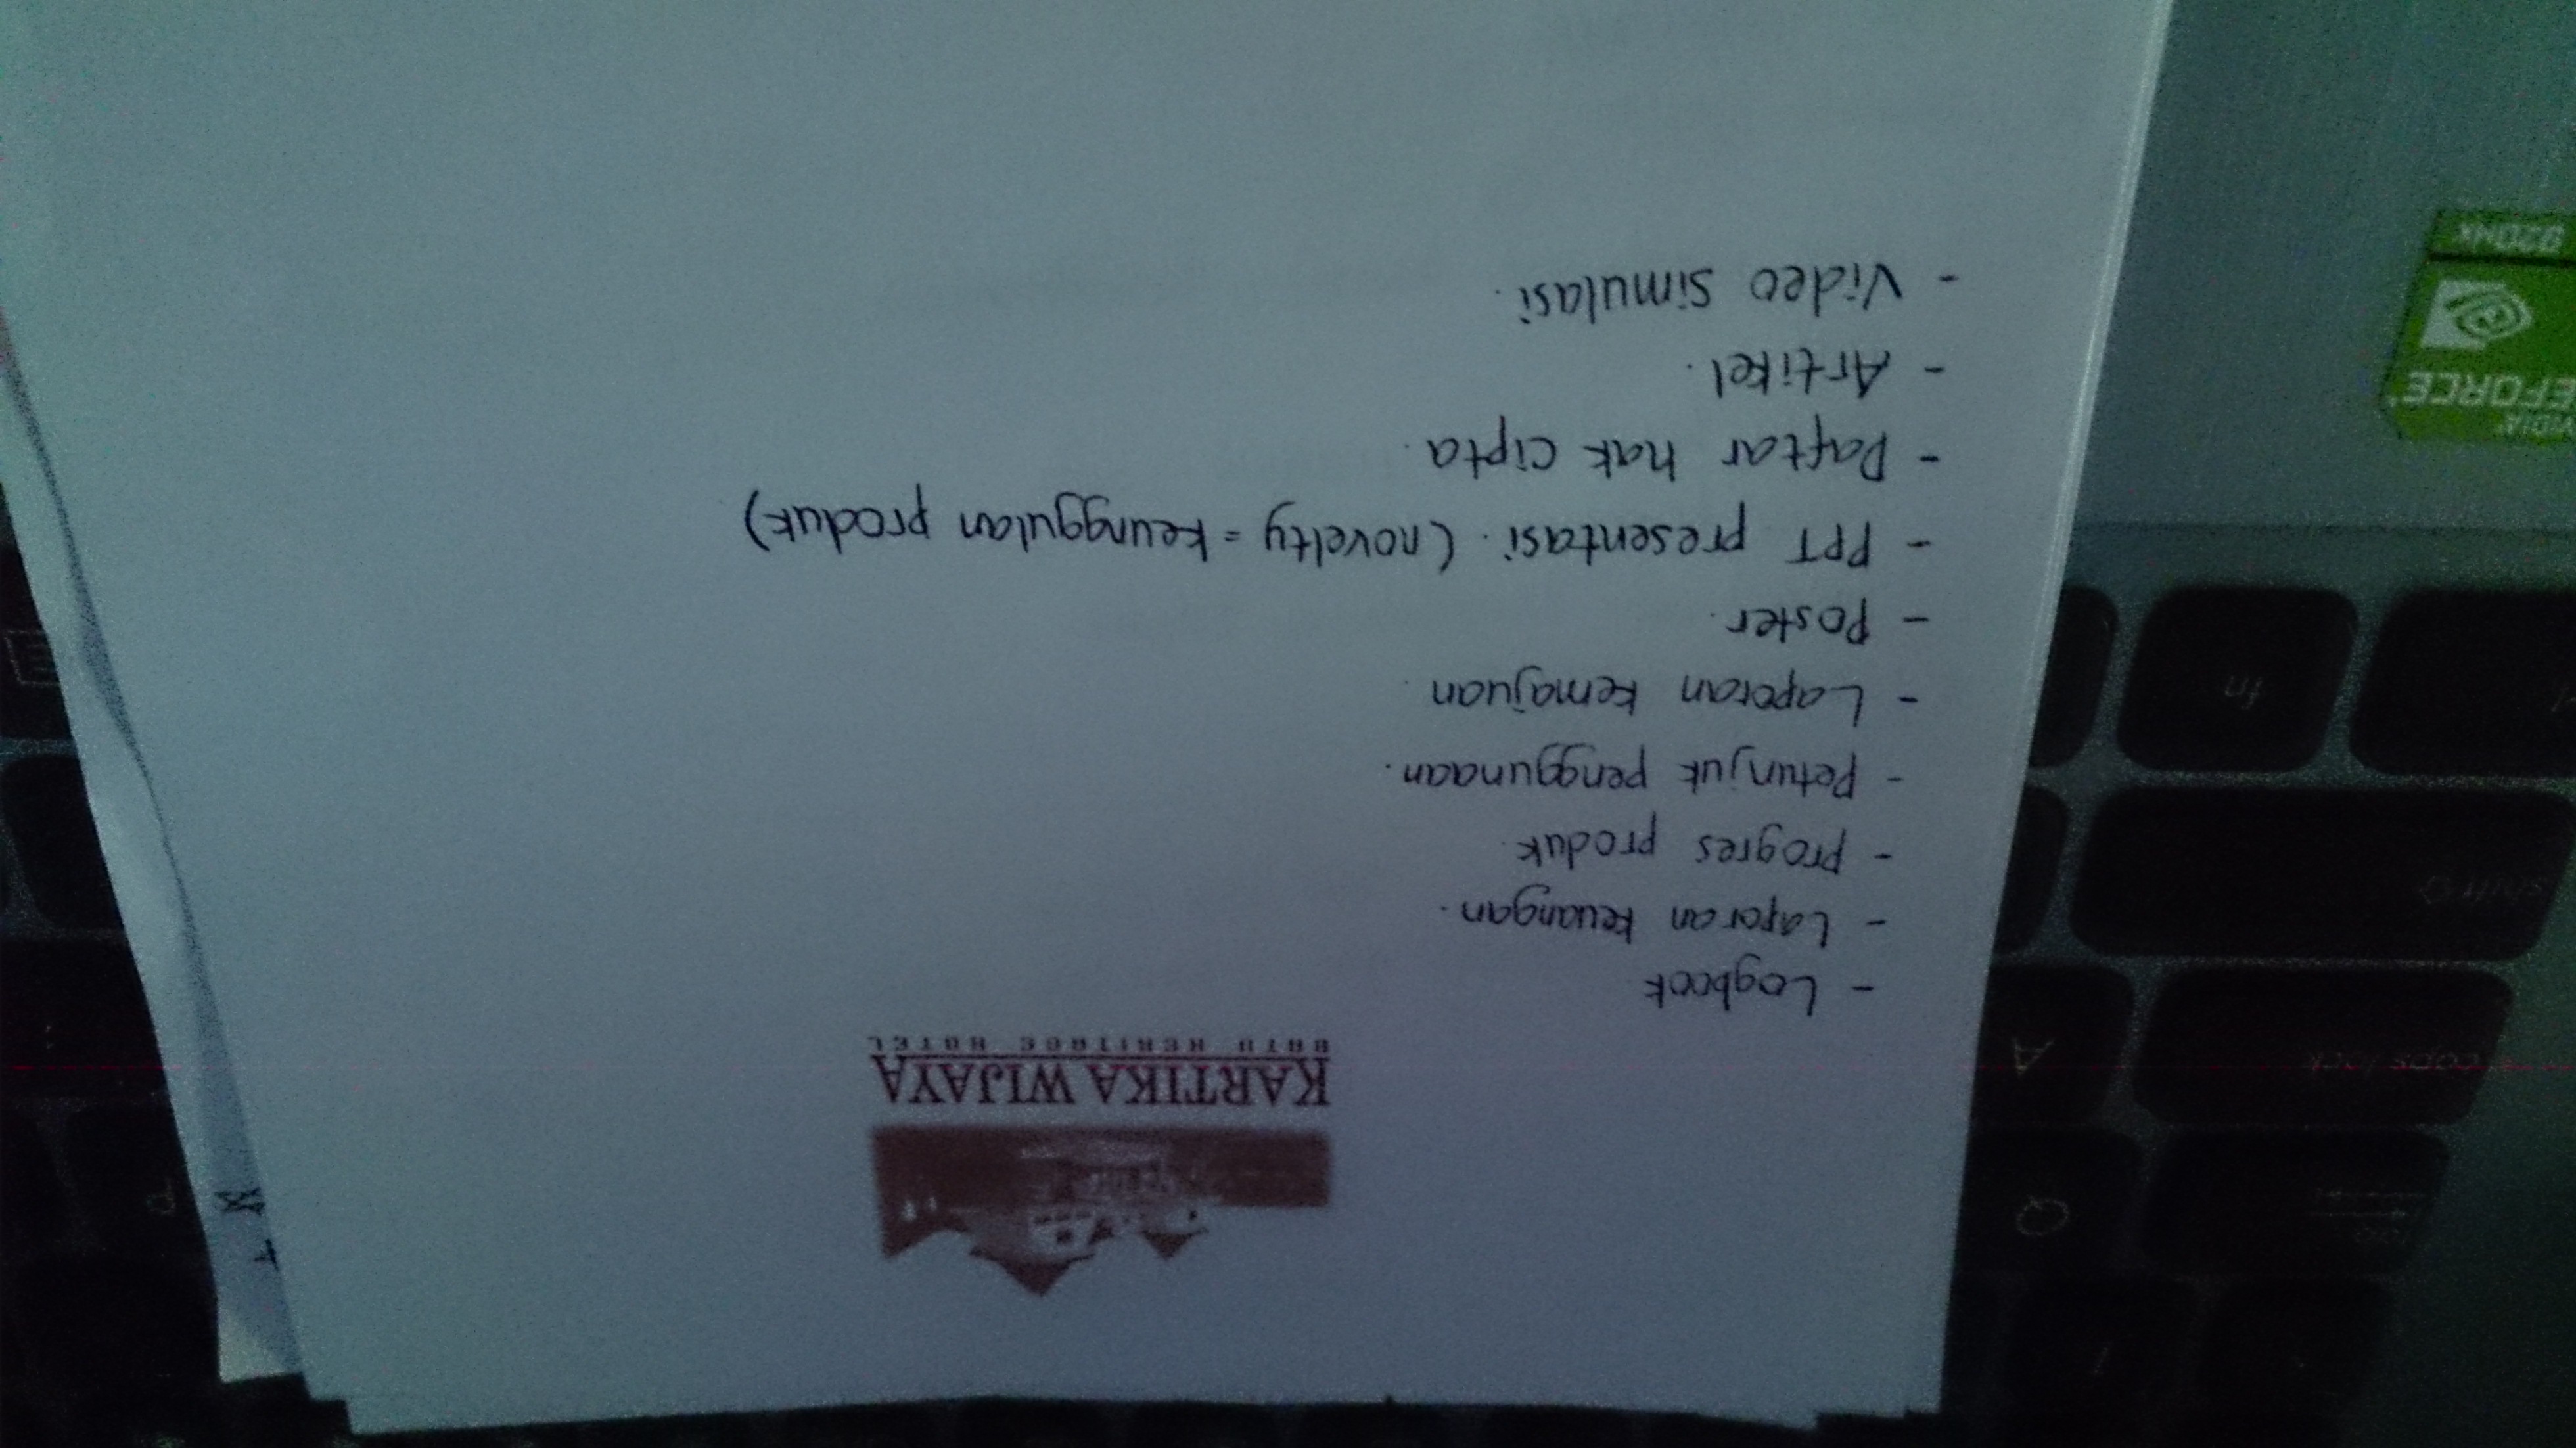 KARTIKA WIJAYA
BATU HERITAGE HOTEL
- Logbook
- Laporan keuangan.
- progres produk.
- Petunjuk penggunaan.
- Laporan kemajuan.
- Poster.
- PPT presentasi. (novelty = keunggulan produk)
- Daftar hak cipta.
- Artikel.
- Video simulasi.
Q
caps lock
A
shift
fn
P
VIDIA
EFORCE
920MX